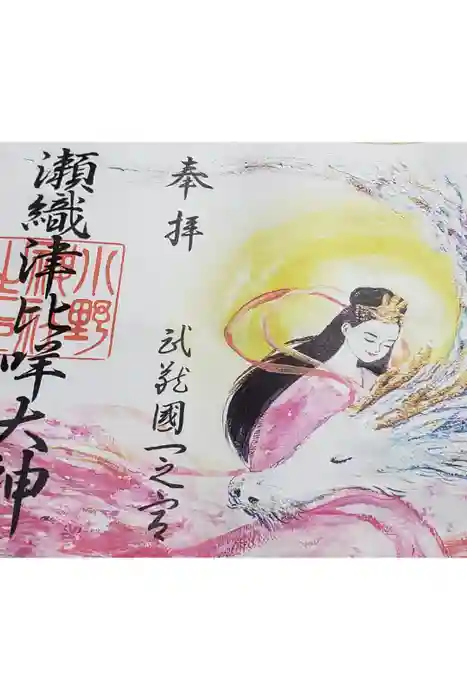 奉拝
武蔵國一之宮
瀬織津比咩大神
小野
神社
之印